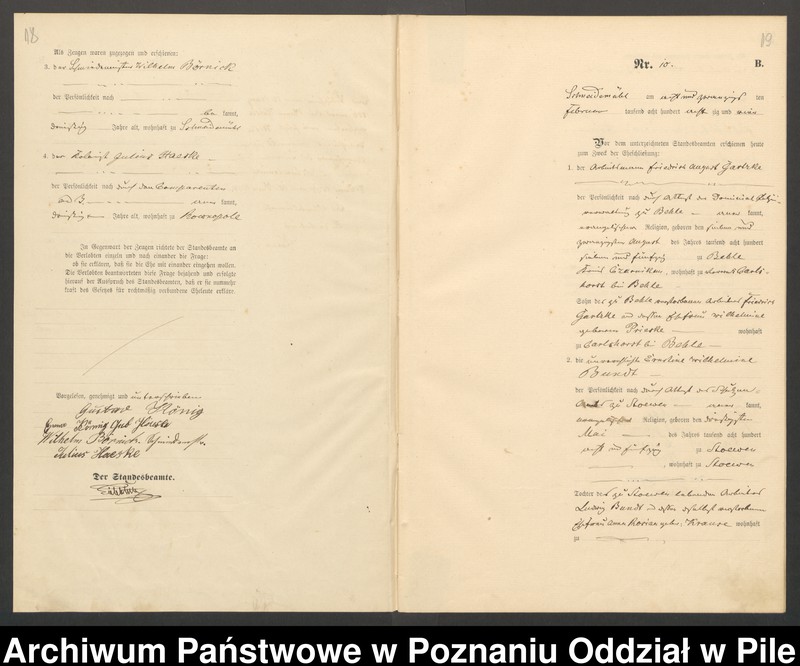 18
Als Zeugen waren zugezogen und erschienen:
3. der Schmiedemeister Wilhelm Börnick
der Persönlichkeit nach
be kannt,
dreissig Jahre alt, wohnhaft zu Schneidemühl
4. der Kolonist Julius Haeske
der Persönlichkeit nach durch den Comparenten
ad 3. kannt,
Jahre alt, wohnhaft zu
In Gegenwart der Zeugen richtete der Standesbeamte an
die Verlobten einzeln und nach einander die Frage:
ob sie erklären, daß sie die Ehe mit einander eingehen wollen.
Die Verlobten beantworteten diese Frage bejahend und erfolgte
hierauf der Ausspruch des Standesbeamten, daß er sie nunmehr
kraft des Gesetzes für rechtmäßig verbundene Eheleute erkläre.
Vorgelesen, genehmigt und unterschrieben
Gustav König
König geb Haeske
Wilhelm Börnick Schmiedemstr.
Julius Haeske
Der Standesbeamte.
19
Nr. 10. B.
Schneidemühl am acht und zwanzigsten
Februar tausend acht hundert acht zig und
Vor dem unterzeichneten Standesbeamten erschienen heute
zum Zweck der Eheschließung:
1. der Arbeitsmann Friedrich August Gartzke
der Persönlichkeit nach durch Attest des Dominial Polizei
verwaltung zu Behle aner kannt,
evangelischer Religion, geboren den sieben und
zwanzigsten August des Jahres tausend acht hundert
sieben und fünfzig zu Behle
Kreis Czarnikau, wohnhaft zu Carls-
horst bei Behle
Sohn des zu Behle verstorbenen Arbeiters Friedrich
Gartzke und dessen Ehefrau Wilhelmine
geborenen Prieske wohnhaft
zu Carlshorst bei Behle
2. die unverehelichte Ernstine Wilhelmine
Bundt
der Persönlichkeit nach durch Attest des Schulzen-
zu Stoewen aner kannt,
evangelischer Religion, geboren den dreissigsten
Mai des Jahres tausend acht hundert
acht und fünfzig zu Stoewen
, wohnhaft zu Stoewen
Tochter des zu Stoewen lebenden Arbeiters
Ludwig Bundt und dessen daselbst verstorbenen
Ehefrau Anna Rosina geb. Krause wohnhaft
zu
Archiwum Państwowe w Poznaniu Oddział w Pile